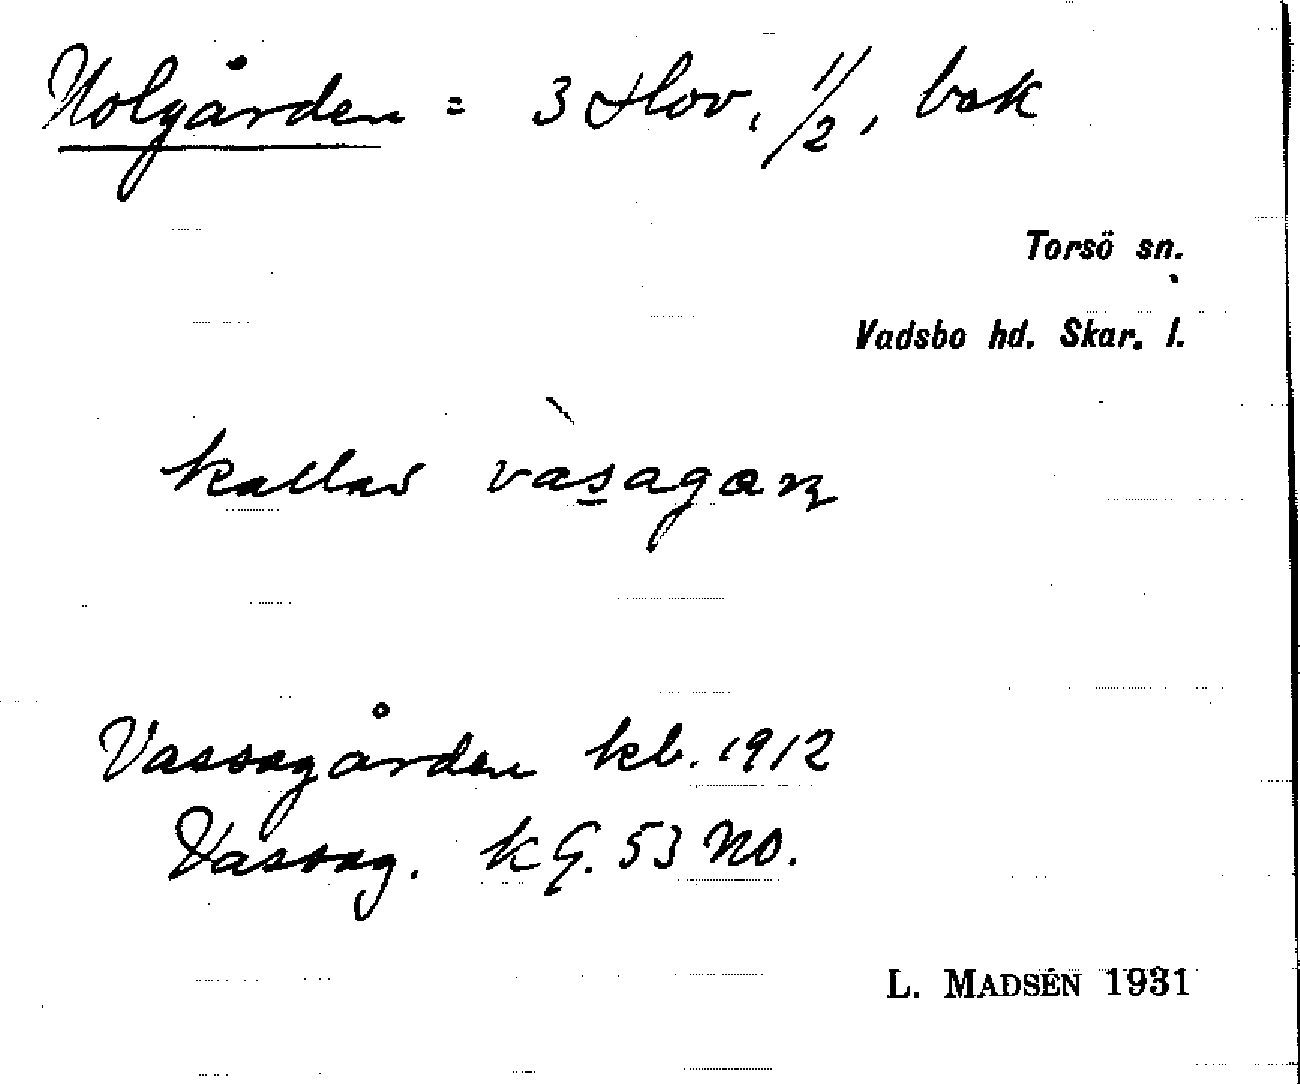 Holgården = 3 Hov, 1/2, bek
Torsö sn.
Vadsbo hd. Skar. l.
kallas vàsagaɳ
Vassagården kb. 1912
Vassag. kG. 53 No.
L. MADSÉN 1931